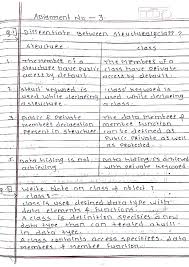 Assignment No - 3
Q.1) Differentiate Between structure & class ?
structure
class
1. The member of a
structure have public
access by default
The members of a
class have private
access by default.
2. struct keyword is
used while declaring
a structure.
class keyword is
used while declaring
a class.
3. Public & Private
member declaration
present in structure
The data members &
member function
can be defined as
Public Private as well
as Protected
4. Data hiding is not
achieved
Data hiding is achieved
with private keyword
Write Note on class & object ?
class :-
class is user defined data type with
data elements & functions.
A class is definition specifies a new
data type than can treated a built -
in data type.
A class contains access specifiers, data
members & member function